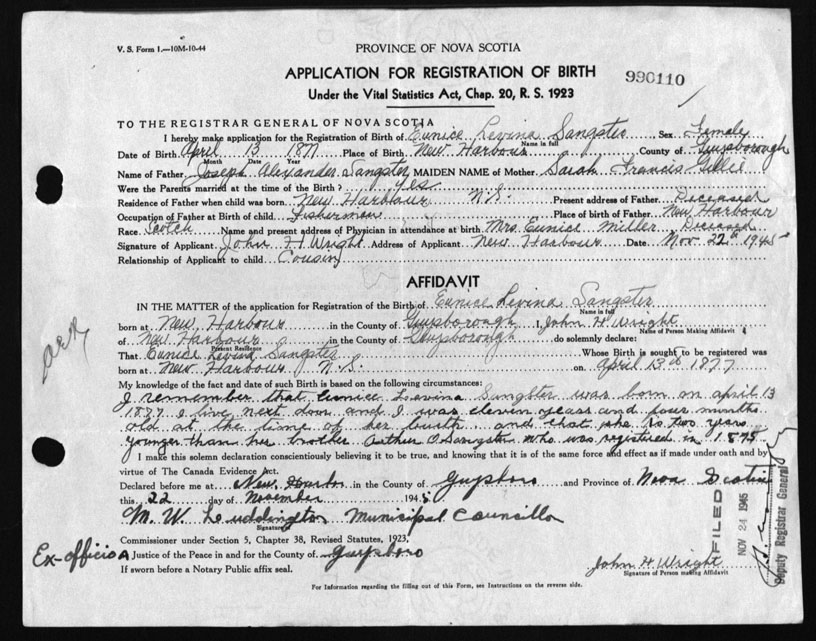 V. S. Form 1.—10M-10-44
PROVINCE OF NOVA SCOTIA
APPLICATION FOR REGISTRATION OF BIRTH
990110
Under the Vital Statistics Act, Chap. 20, R. S. 1923
TO THE REGISTRAR GENERAL OF NOVA SCOTIA
I hereby make application for the Registration of Birth of Eunice Levina Sangster Sex Female
Name in full
Date of Birth April 13 1877 Place of Birth New Harbour County of Guysborough
Month Date Year
Name of Father Joseph Alexander Sangster MAIDEN NAME of Mother Sarah Francis Gillie
Were the Parents married at the time of Birth? Yes
Residence of Father when child was born New Harbour N.S. Present address of Father Deceased
Occupation of Father at Birth of child Fisherman Place of birth of Father New Harbour
Race Scotch Name and present address of Physician in attendance at birth Mrs. Eunice Miller, Deceased
Signature of Applicant John H Wright Address of Applicant New Harbour Date Nov 22d 1945
Relationship of Applicant to child Cousin
AFFIDAVIT
IN THE MATTER of the application for Registration of the Birth of Eunice Levina Sangster
Name in full
born at New Harbour in the County of Guysborough I, John H Wright
Name of Person Making Affidavit
of New Harbour in the County of Guysborough do solemnly declare:
Present Residence
That Eunice Levina Sangster Whose Birth is sought to be registered was
born at New Harbour N.S. on April 13th 1877
My knowledge of the fact and date of such Birth is based on the following circumstances:
I remember that Eunice Leavina Sangster was born on april 13
1877 I live next door and I was eleven years and four months
old at the time of her birth and that she is two years
younger than her brother Arthur O Sangster who was registered in 1875
I make this solemn declaration conscientiously believing it to be true, and knowing that it is of the same force and effect as if made under oath and by
virtue of The Canada Evidence Act.
Declared before me at New Harbor in the County of Guysboro and Province of Nova Scotia
this 22 day of November 1945
M. W. Luddington Municipal Councillor
Signature
Commissioner under Section 5, Chapter 38, Revised Statutes, 1923,
Ex-officio A Justice of the Peace in and for the County of Guysboro
If sworn before a Notary Public affix seal.
John H Wright
Signature of Person Making Affidavit
For Information regarding the filling out of this Form, see Instructions on the reverse side.
FILED
NOV 24 1945
Deputy Registrar General